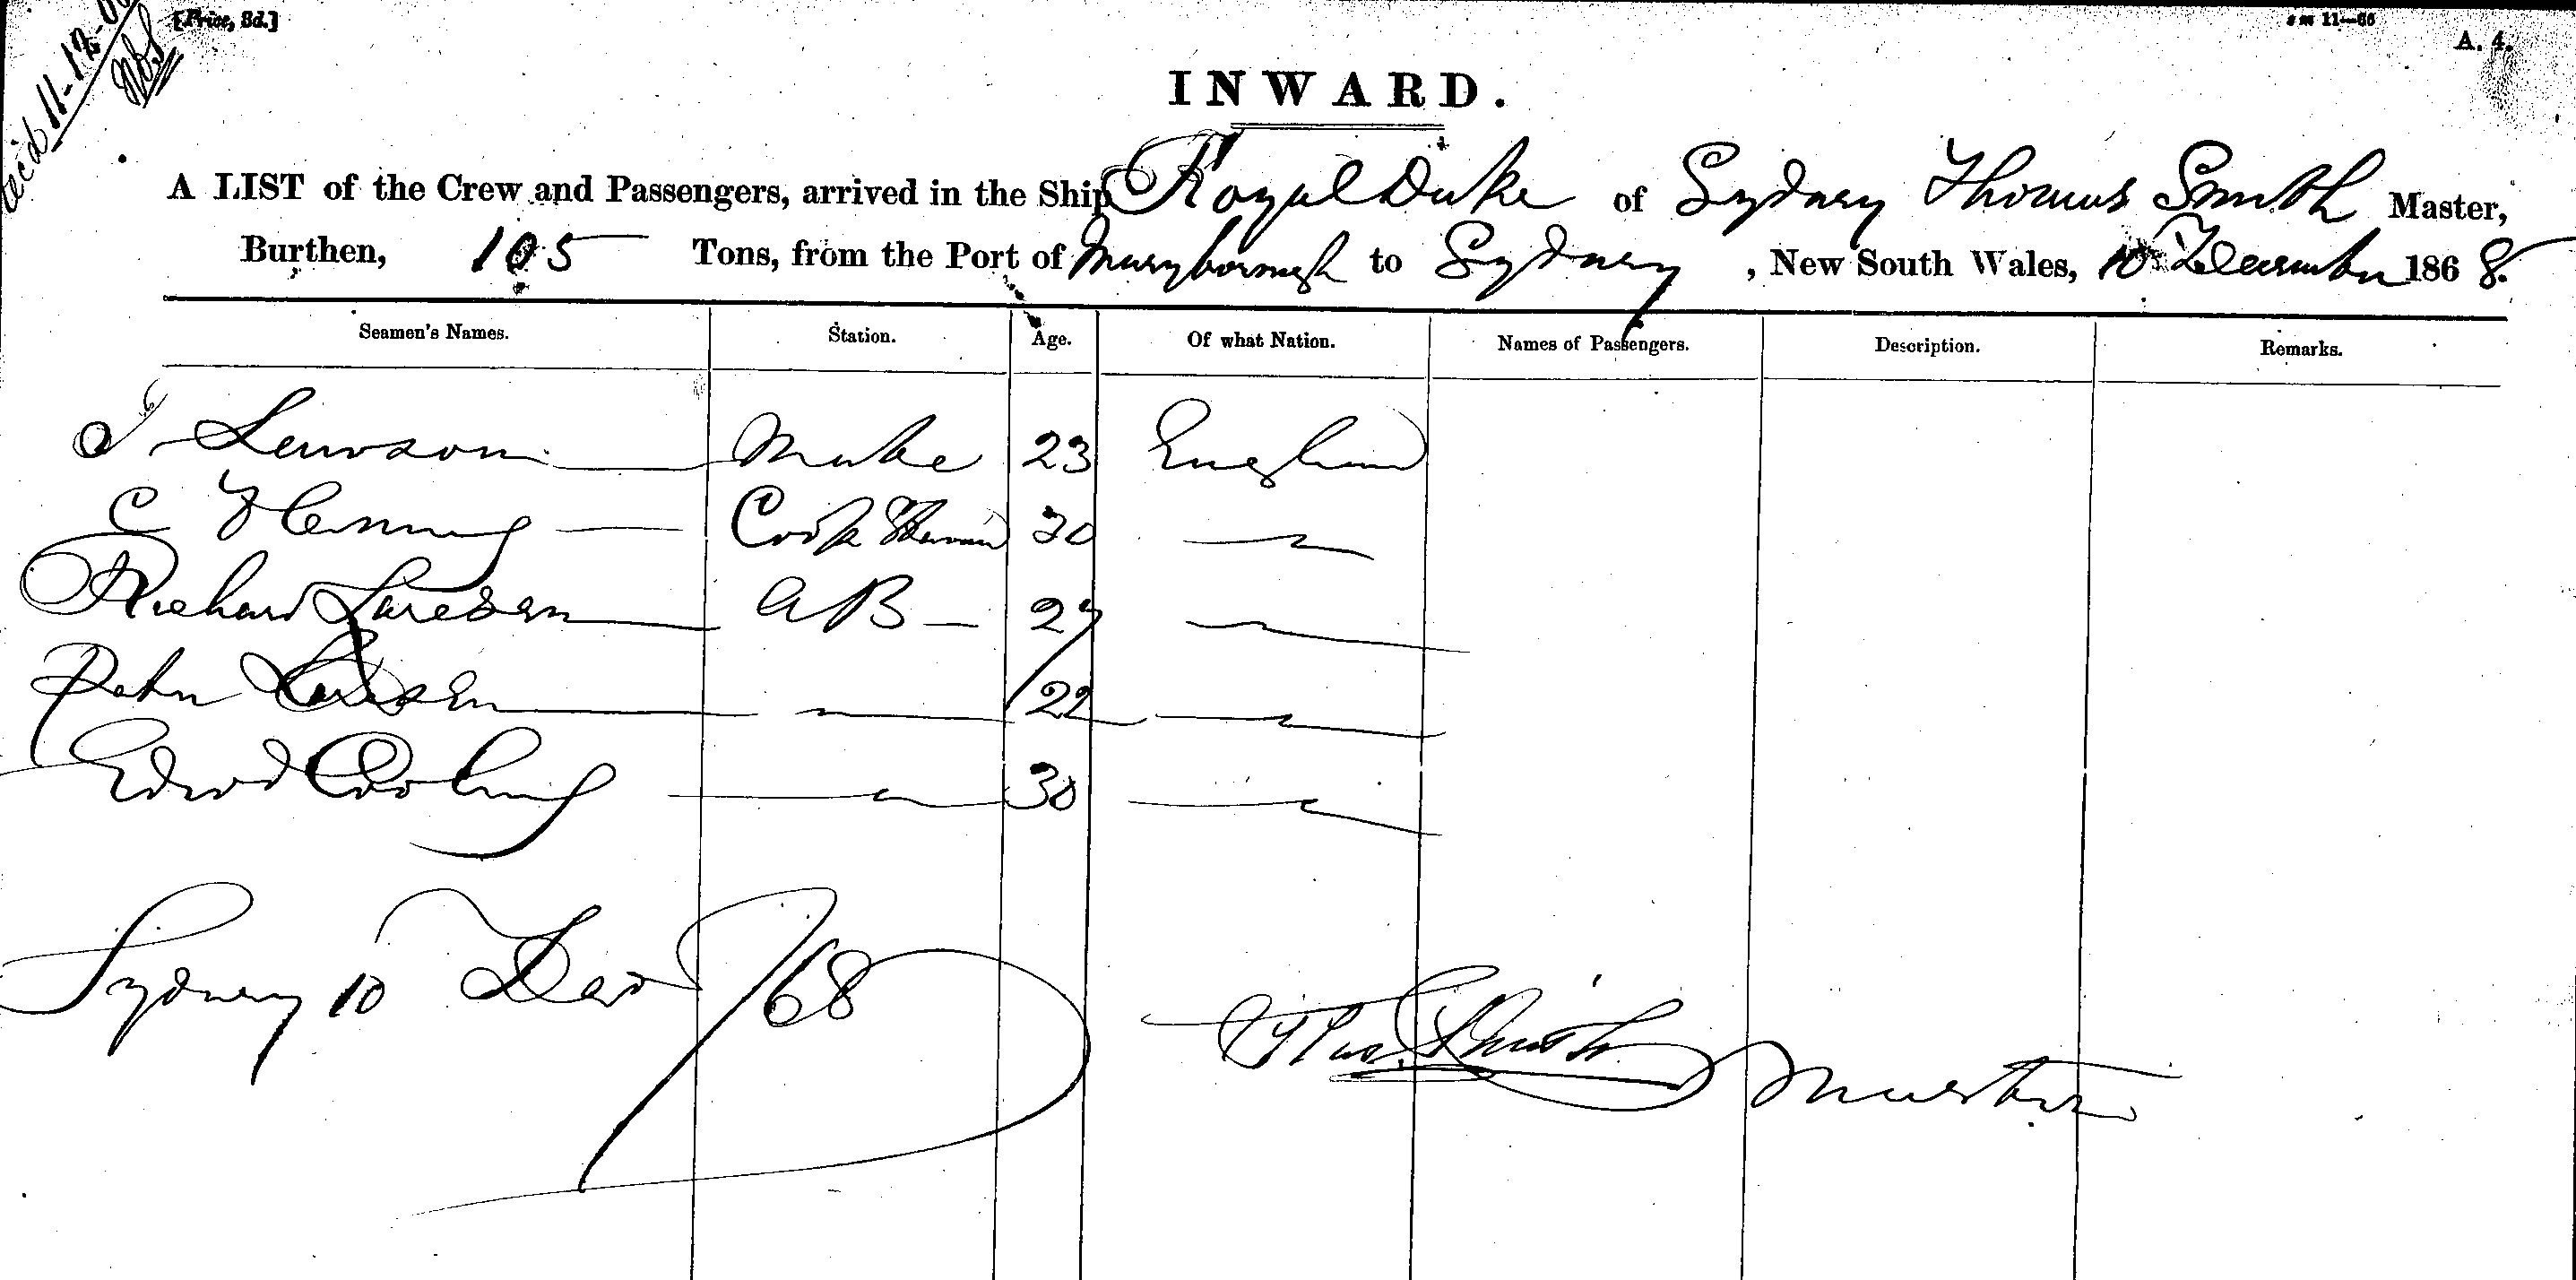 [Price, 3d.]
A. 4.
INWARD.
A LIST of the Crew and Passengers, arrived in the Ship Royal Duke of Sydney Thomas Smith Master,
Burthen, 105 Tons, from the Port of Maryborough to Sydney, New South Wales, 10 December 1868.
Seamen's Names. Station. Age. Of what Nation. Names of Passengers. Description. Remarks.
J Lawson Mate 23 England
C Fleming Cook 30
Richard Laresen AB 27
Peter 22
Edwd Cooling 30
Sydney 10 /68
Thos Smith
Master